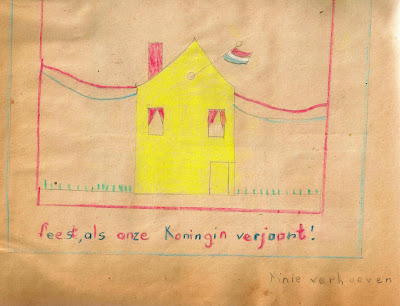 feest, als onze Koningin verjaart!
Rinie verhoeven